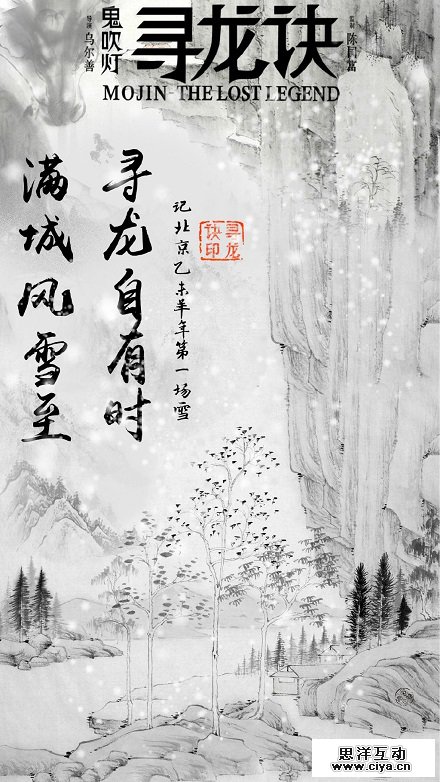 鬼吹灯
寻龙诀
导演 乌尔善
监制 陈国富
MOJIN-THE LOST LEGEND
满城风雪至
寻龙自有时
记北京乙未羊年第一场雪
寻龙
诀印
思洋互动
www.ciya.cn